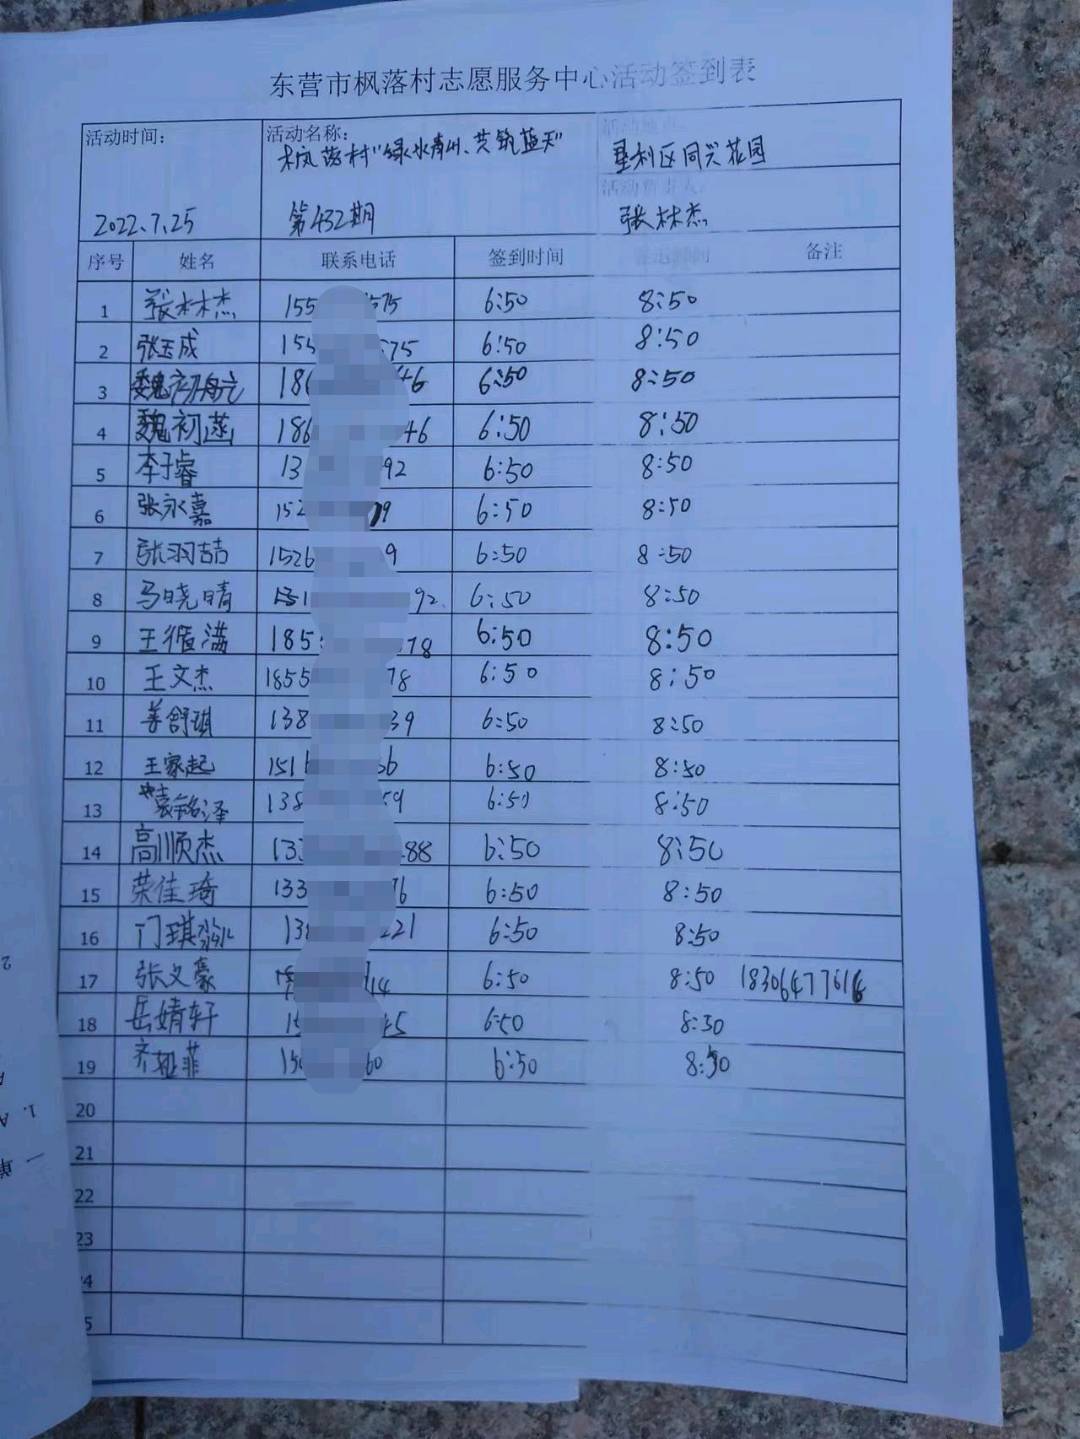 东营市枫落村志愿服务中心活动签到表
活动时间: 活动名称: 活动地点:
枫落村"绿水青山、共筑蓝天" 垦利区同兴花园
活动负责人:
2022.7.25 第432期 张林杰
序号 姓名 联系电话 签到时间 签退时间 备注
1 张林杰 155 575 6:50 8:50
2 张玉成 155 575 6:50 8:50
3 魏初 186 46 6:50 8:50
4 魏初涵 186 46 6:50 8:50
5 李子睿 13 92 6:50 8:50
6 张永嘉 152 09 6:50 8:50
7 张羽喆 1526 9 6:50 8:50
8 马晓晴 151 92 6:50 8:50
9 王循满 185 78 6:50 8:50
10 王文杰 1855 78 6:50 8:50
11 姜舒琪 138 39 6:50 8:50
12 王家起 1516 36 6:50 8:50
13 袁铭泽 138 59 6:50 8:50
14 高顺杰 133 88 6:50 8:50
15 荣佳琦 133 76 6:50 8:50
16 门琪 138 221 6:50 8:50
17 张文豪 14 6:50 8:50 1830647761
18 岳婧轩 15 45 6:50 8:50
19 齐娅菲 150 60 6:50 8:50
20
21
22
23